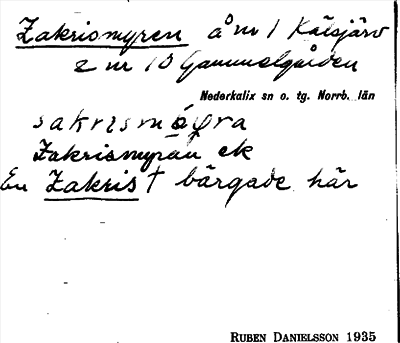 Zakrismyren å nr 1 Kälsjärv
e nr 10 Gammelgården
Nederkalix sn o. tg. Norrb. län
sakrismyra
Zakrismyran ek
En Zakris † bärgade här
RUBEN DANIELSSON 1935